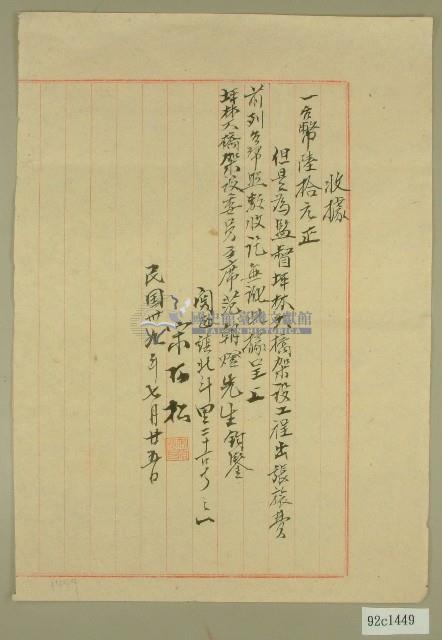 收據
一台幣陸拾元正
但是為監督坪林大橋架設工程出張旅費
前列台幣照數收訖無訛 據呈上
坪林大橋架設委員主席 先生鈞鑒
關西鎮北斗里二十六号之一
宋石松
民国卅九年七月廿五日
國史館臺灣文獻館
TAIWAN HISTORICA
92c1449